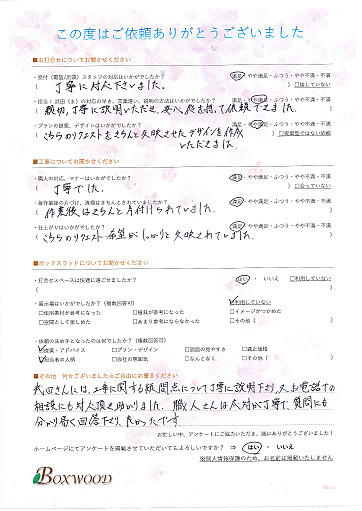 この度はご依頼ありがとうございました
■お打合せについてお聞かせください
・受付（電話/店頭）スタッフの対応はいかがでしたか？ 満足・やや満足・ふつう・やや不満・不満
（ 丁寧に対応下さいました。 ） □話していない
・担当：武田（ま）の対応の早さ、言葉遣い、説明の方法はいかがでしたか？ 満足・やや満足・ふつう・やや不満・不満
（ 親切、丁寧に説明いただき、安心感を持って依頼できました ）
・プランの提案、デザインはいかがでしたか？ 満足・やや満足・ふつう・やや不満・不満
（ こちらのリクエストをきちんと反映させたデザインを作成 ） □提案型ではない依頼
いただきました
■工事についてお聞かせください
・職人の対応、マナーはいかがでしたか？ 満足・やや満足・ふつう・やや不満・不満
（ 丁寧でした。 ） □会っていない
・毎作業後の片づけ、清掃はきちんとされていましたか？ 満足・やや満足・ふつう・やや不満・不満
（ 作業後はきちんと片付けられていました。 ）
・仕上がりはいかがでしたか？ 満足・やや満足・ふつう・やや不満・不満
（ こちらのリクエスト・希望がしっかりと反映されていました。 ）
■ボックスウッドについてお聞かせください
・打合せスペースは快適に過ごせましたか？ はい ・ いいえ □利用していない
（ ）
・展示場はいかがでしたか？（複数回答可） □利用していない
□使用素材が参考になった □植栽が参考になった □イメージがつかめた
□空間として楽しめた □あまり参考にならなかった □その他（ ）
・依頼の決め手となったのは何でしたか？（複数回答可）
□提案・アドバイス □プラン・デザイン □図面の見やすさ □適正価格
□担当者の人柄 □会社の雰囲気 □なんとなく □その他（ ）
■その他 何かございましたらご自由にお書きください
武田さんには、工事に関する疑問点について丁寧に説明下さり、又、お電話での
相談にも対応頂き助かりました。職人さんは応対が丁寧で、質問にも
分かり易く回答下さり、良かったです
お忙しい中、アンケートにご協力いただき、誠にありがとうございました！
ホームページにてアンケートを掲載させていただいてもよろしいですか？ ⇒ はい ・ いいえ
※個人情報保護のため、お名前は掲載いたしません
BOXWOOD